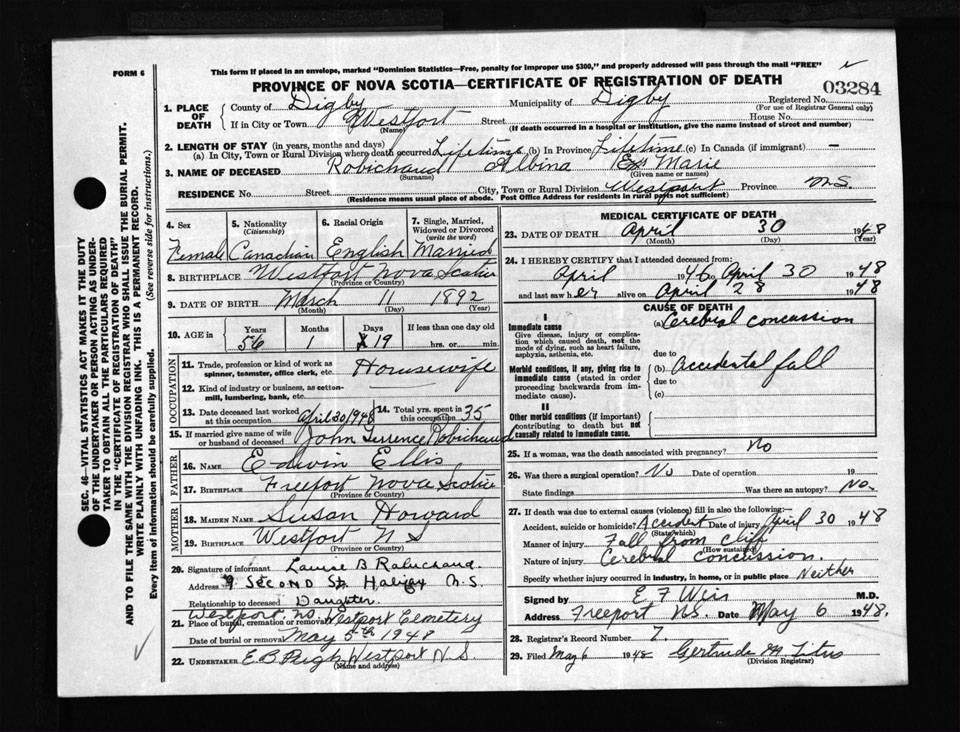 FORM 6
This form if placed in an envelope, marked "Dominion Statistics—Free, penalty for improper use $300," and properly addressed will pass through the mail "FREE"
PROVINCE OF NOVA SCOTIA—CERTIFICATE OF REGISTRATION OF DEATH
03284
1. PLACE OF DEATH
County of Digby Municipality of Digby Registered No.
(For use of Registrar General only)
If in City or Town Westport Street House No.
(Name) (If death occurred in a hospital or institution, give the name instead of street and number)
2. LENGTH OF STAY (in years, months and days)
(a) In City, Town or Rural Division where death occurred Lifetime (b) In Province Lifetime (c) In Canada (if immigrant) —
3. NAME OF DECEASED Robichaud Albina Marie
(Surname) (Given name or names)
RESIDENCE No. Street City, Town or Rural Division Westport Province N.S.
(Residence means usual place of abode. Post Office Address for residents in rural parts not sufficient)
4. Sex Female
5. Nationality (Citizenship) Canadian
6. Racial Origin English
7. Single, Married, Widowed or Divorced (write the word) Married
8. BIRTHPLACE Westport Nova Scotia
(Province or Country)
9. DATE OF BIRTH March 11 1892
(Month) (Day) (Year)
10. AGE in Years Months Days If less than one day old
56 1 19 hrs. or min.
OCCUPATION
11. Trade, profession or kind of work as spinner, teamster, office clerk, etc. Housewife
12. Kind of industry or business, as cotton-mill, lumbering, bank, etc.
13. Date deceased last worked at this occupation April 30/1948
14. Total yrs. spent in this occupation 35
15. If married give name of wife or husband of deceased John Terrence Robichaud
FATHER
16. NAME Edwin Ellis
17. BIRTHPLACE Freeport Nova Scotia
(Province or Country)
MOTHER
18. MAIDEN NAME Susan Howard
19. BIRTHPLACE Westport N S
(Province or Country)
20. Signature of informant B Robichaud
Address 9 SECOND St. Halifax N.S.
Relationship to deceased Daughter.
21. Place of burial, cremation or removal Westport, NS Westport Cemetery
Date of burial or removal May 5th 1948
22. UNDERTAKER E B Westport N S
(Name and address)
MEDICAL CERTIFICATE OF DEATH
23. DATE OF DEATH April 30 1948
(Month) (Day) (Year)
24. I HEREBY CERTIFY that I attended deceased from:
April 19 to April 30 1948
and last saw her alive on April 28 1948
CAUSE OF DEATH
I
Immediate cause
Give disease, injury or complication which caused death, not the mode of dying, such as heart failure, asphyxia, asthenia, etc.
(a) Cerebral concussion
due to
Morbid conditions, if any, giving rise to immediate cause (stated in order proceeding backwards from immediate cause).
(b) Accidental fall
due to
(c)
II
Other morbid conditions (if important) contributing to death but not causally related to immediate cause.
25. If a woman, was the death associated with pregnancy? No
26. Was there a surgical operation? No Date of operation 19
State findings Was there an autopsy? No.
27. If death was due to external causes (violence) fill in also the following:—
Accident, suicide or homicide? Accident Date of injury April 30 1948
(State which)
Manner of injury Fall from cliff
(How sustained)
Nature of injury Cerebral concussion.
Specify whether injury occurred in industry, in home, or in public place Neither
Signed by E F Weir M.D.
Address Freeport N.S. Date May 6 1948.
28. Registrar's Record Number 7.
29. Filed May 6 1948 Gertrude M. Titus
(Division Registrar)
SEC. 46—VITAL STATISTICS ACT MAKES IT THE DUTY
OF THE UNDERTAKER OR PERSON ACTING AS UNDER-
TAKER TO OBTAIN ALL THE PARTICULARS REQUIRED
IN THE "CERTIFICATE OF REGISTRATION OF DEATH"
AND TO FILE THE SAME WITH THE DIVISION REGISTRAR WHO SHALL ISSUE THE BURIAL PERMIT.
WRITE PLAINLY WITH UNFADING INK. THIS IS A PERMANENT RECORD.
Every item of information should be carefully supplied. (See reverse side for instructions.)